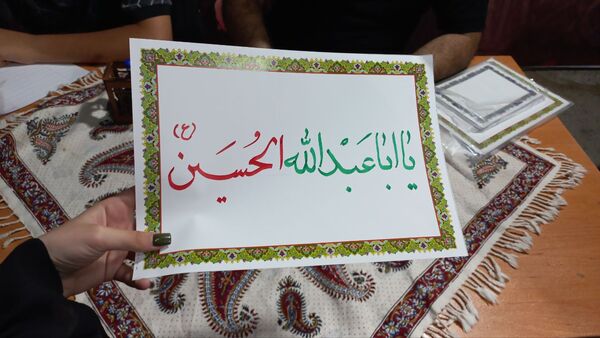 یا اباعَبْدالله الحُسَین (ع)